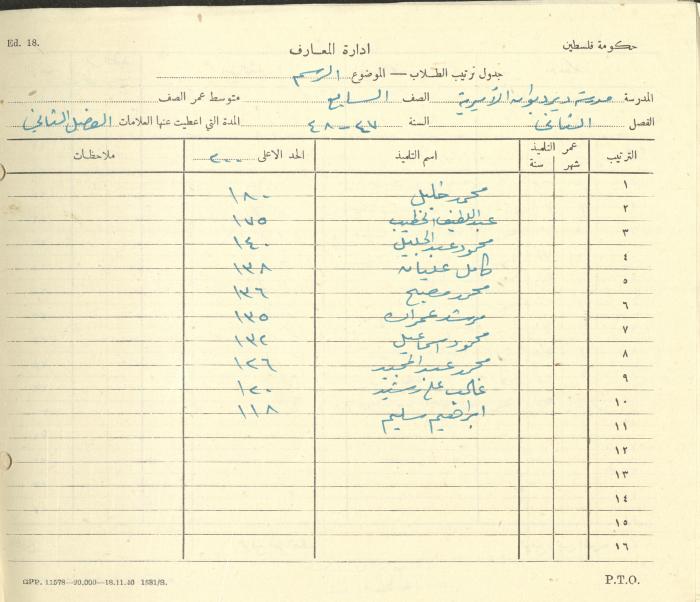 Ed. 18.
حكومة فلسطين
ادارة المعارف
جدول ترتيب الطلاب — الموضوع الرسم
المدرسة مدرسة ديرديوان الأميرية الصف السابع متوسط عمر الصف
الفصل الثاني السنة ٤٧-٤٨ المدة التي اعطيت عنها العلامات الفصل الثاني
الترتيب عمر التلميذ شهر سنة اسم التلميذ الحد الاعلى ٢٠٠ ملاحظات
١ محمود خليل ١٨٠
٢ عبد اللطيف الخطيب ١٧٥
٣ محمود عبد الجليل ١٤٠
٤ كامل عليان ١٣٨
٥ محمد مصبح ١٣٦
٦ مرشد عمران ١٣٥
٧ محمود اسماعيل ١٣٢
٨ محمد عبد المجيد ١٢٦
٩ غالب علي رشيد ١٢٠
١٠ ابراهيم سليم ١١٨
١١
١٢
١٣
١٤
١٥
١٦
GPP. 11578—20.000—18.11.46 1581/S.
P.T.O.